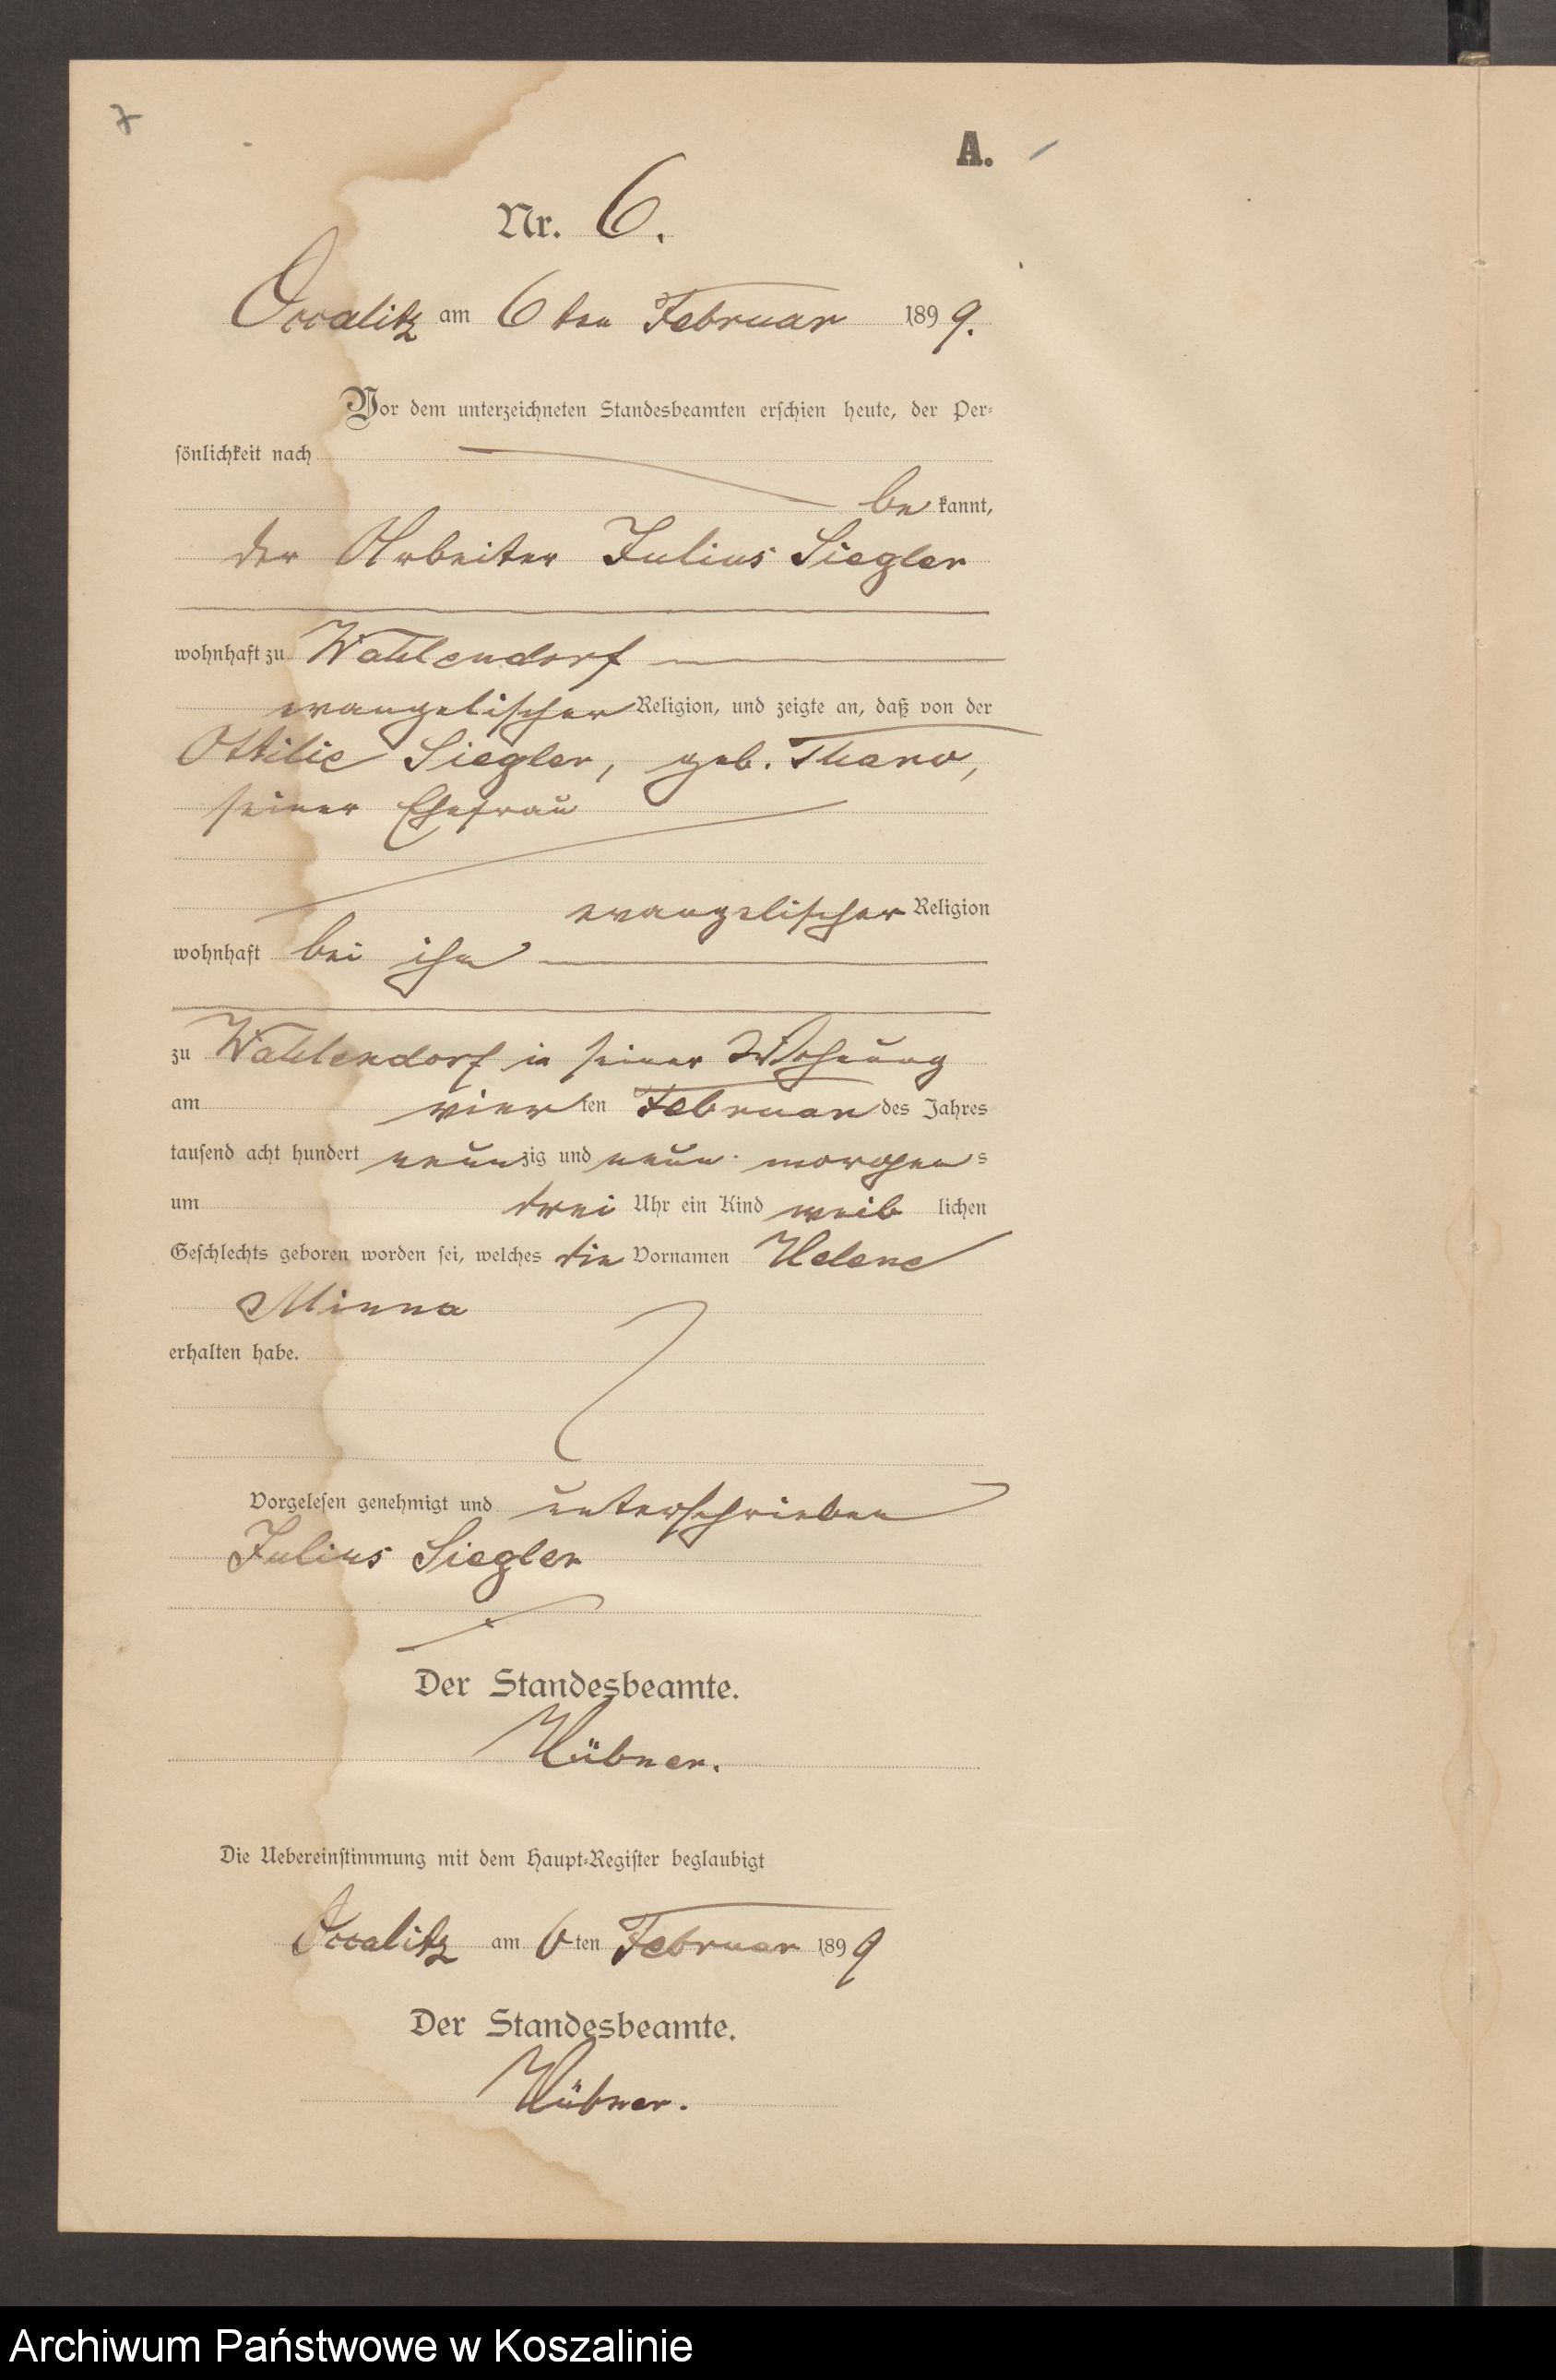 7
A.
Nr. 6.
Occalitz am 6ten Februar 1899.
Vor dem unterzeichneten Standesbeamten erschien heute, der Per-
sönlichkeit nach
be kannt,
der Arbeiter Julius Siegler
wohnhaft zu Wahlendorf
evangelischer Religion, und zeigte an, daß von der
Ottilie Siegler, geb. Tharo,
seiner Ehefrau
evangelischer Religion
wohnhaft bei ihm
zu Wahlendorf in seiner Wohnung
am vier ten Februar des Jahres
tausend acht hundert neun zig und neun morgen s
um drei Uhr ein Kind weib lichen
Geschlechts geboren worden sei, welches die Vornamen Helene
Minna
erhalten habe.
Vorgelesen genehmigt und unterschrieben
Julius Siegler
Der Standesbeamte.
Hübner.
Die Uebereinstimmung mit dem Haupt-Register beglaubigt
Occalitz am 6ten Februar 1899
Der Standesbeamte.
Hübner.
Archiwum Państwowe w Koszalinie